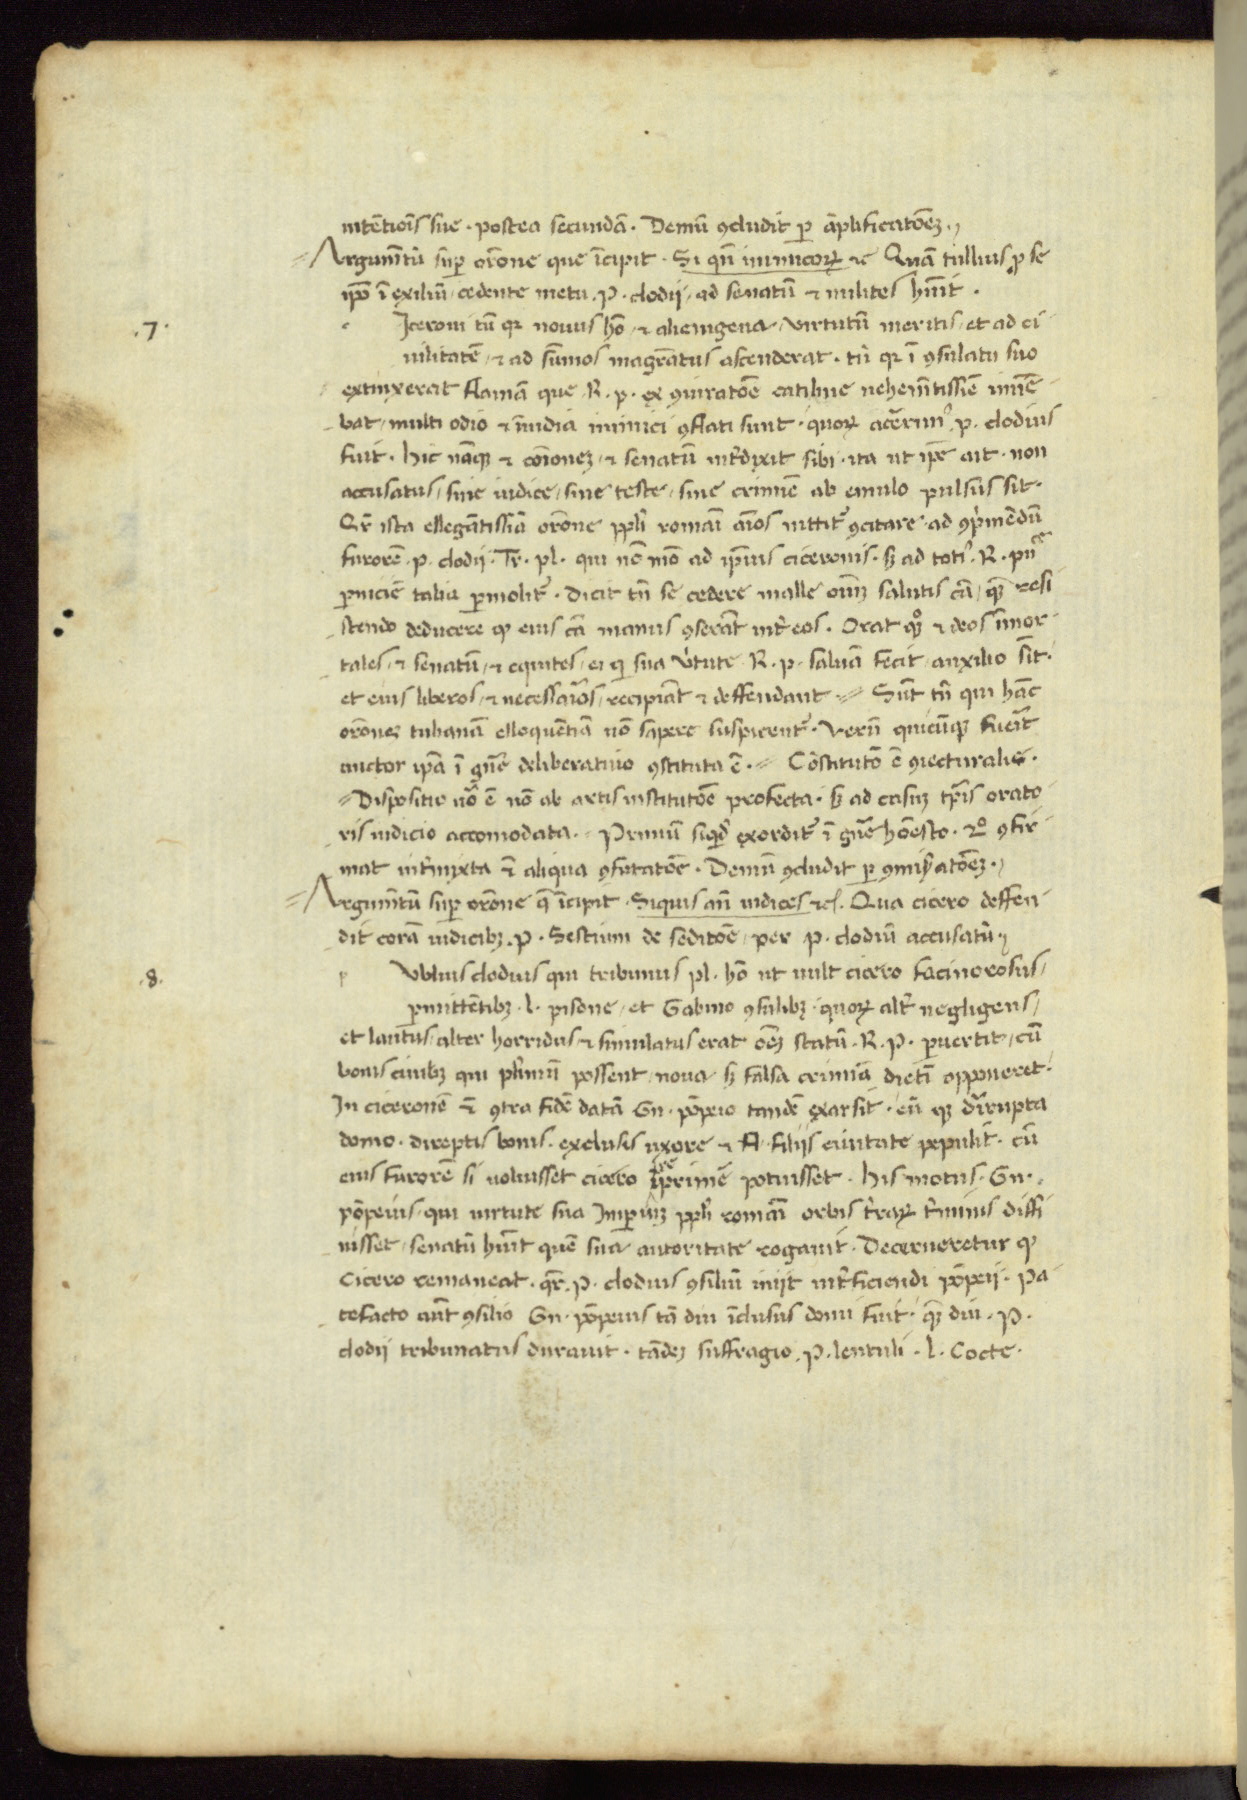 intētiōis sue · postea secundā · Demū ꝯcludit ꝑ āplificatōeȝ ·
Argumētū suꝑ orōne que īcipit · Si qn̄ inimicoꝝ ⁊c̄ Quā tullius ꝓ se
ip̄o ī exiliū cedente metu · P · clodij ad senatū ⁊ milites hūit ·
.7. c Iceroni tū qꝛ nouus hō ⁊ alienigena virtutū meritis et ad ci
uilitatē ⁊ ad sūmos magrātus ascenderat · tū qꝛ ī ꝯsulatu suo
extinxerat flamā que · R · p · ex ꝯiuratōe catiline uehemētissie īmīe
bat multi odio ⁊ īuidia inimici ꝯflati sunt · quoꝝ acerim⁹ p · clodius
fuit · hic nāqꝫ ⁊ cōioneȝ ⁊ senatū int̄dixit sibi · ita ut ip̄e ait · non
accusatus sine iudice sine teste sine crimīe ab emulo pulsus sit ·
Qr̄ ista ellegātissīa orōne ppl̄i romāi aīos nittit᷑ ꝯcitare ad ꝯp̄mēdū
furorē · p · clodij · Tr̄ · pl · qui nō mō ad ip̄ius ciceronis · sꝫ ad toti⁹ · R · p
ꝑniciē talia ꝑmolit᷑ · dicit tn̄ se cedere malle oīuȝ salutis cā qꝫ resi
stendo deducere ꝙ eius cā manus ꝯserāt int̄ eos · Orat qꝫ ⁊ deos īmor
tales ⁊ senatū ⁊ equites ei qi sua v̄tute · R · p · saluā fecit auxilio sīt ·
et eius liberos ⁊ necessarios recipiāt ⁊ deffendant · Sūt tn̄ qui hāc
orōneȝ tulianā elloquētiā nō sapere suspicent᷑ · Verū quicūqꝫ fuerit
auctor ip̄a ī gn̄e deliberatiuo ꝯstituta ē · Cōstitutō ē ꝯiecturalis ·
Dispositio uō ē nō ab artis institutōe profecta · sꝫ ad casuȝ tp̄is orato
ris iudicio accomodata · Primū siqd̄ exordit᷑ ī gn̄e honesto · 2° ꝯfir
mat int̄mixta ē aliqua ꝯfutatōe · Demū ꝯcludit ꝑ ꝯmis̄atōeȝ ·
Argumētū suꝑ orōne q̄ īcipit · Siquis an̄ iudices ⁊c̄ · Qua cicero deffen
dit corā iudicibꝫ · P · Sestium de seditōe per p · clodiū accusatū ·
.8. p Vblius clodius qui tribunus pl · hō ut uult cicero facinorosus
ꝑmittētibꝫ · l · pisone et Gabinio ꝯsulibꝫ · quoꝝ alt̄ negligens
et lautus alter horridus ⁊ simulatus erat oēȝ statū · R · P · ꝑuertit cū
bonis ciuibꝫ qui pl̄imū possent noua sꝫ falsa crimīa dietī opponeret ·
In ciceronē ē ꝯtra fidē datā Gn · pōpeio tandē exarsit · eū qꝫ dirrupta
domo · direptis bonis · exclusis uxore ⁊ filijs ciuitate pepulit · cū
eius furorē si uoluisset cicero īprimē potuisset · his motus · Gn ·
pōpeius qui uirtute sua Imperiuȝ ppl̄i romāi orbis t̄raꝝ t̄minis diffi
nisset senatū hūit quē sua autoritate rogauit · Decerneretur ꝙ
cicero remaneat · qr̄ · P · clodius ꝯsiliū iniit int̄ficiendi pōpeij · Pa
tefacto aūt ꝯsilio Gn · pōpeius tā diu īclusus domi fuit · qꝫ diu · P ·
clodij tribunatus durauit · tādeȝ suffragio · P · lentuli · l · Cocte ·